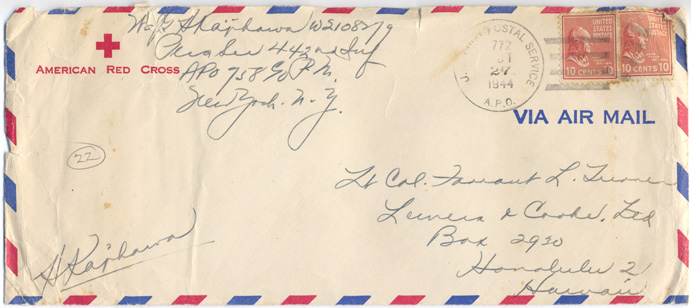 W2108579
AMERICAN RED CROSS
442nd Inf
APO 758 % P.M.
New York. N.Y.
U.S. ARMY POSTAL SERVICE
772
27
1944
A.P.O.
UNITED STATES POSTAGE
10 CENTS 10
UNITED STATES POSTAGE
10 CENTS 10
VIA AIR MAIL
22
Lt Col. Farrant L. Turner
Lewers & Cooke, Ltd
Box 2930
Honolulu 2
Hawaii